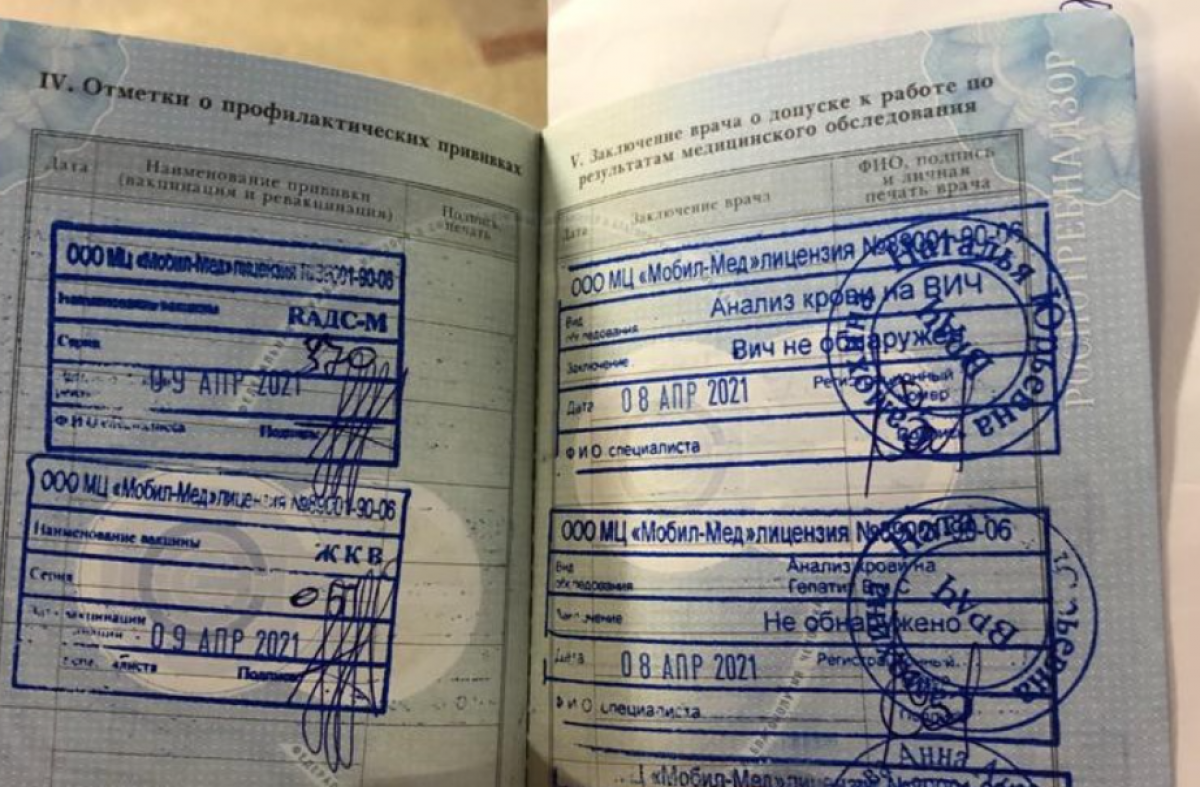 IV. Отметки о профилактических прививках
Дата
Наименование прививки
(вакцинация и ревакцинация)
Подпись,
печать
ООО МЦ «Мобил-Мед» лицензия №89001-90-06
Наименование вакцины
RАДС-М
Серия
370
09 АПР 2021
ФИО специалиста
Подпись
ООО МЦ «Мобил-Мед» лицензия №89001-90-06
Наименование вакцины
ЖКВ
Серия
вакцинации
09 АПР 2021
Подпись
V. Заключение врача о допуске к работе по
результатам медицинского обследования
Дата
Заключение врача
ФИО, подпись
и личная
печать врача
ООО МЦ «Мобил-Мед»лицензия №89001-90-06
Вид
обследования
Анализ крови на ВИЧ
Заключение
Вич не обнаружен
Дата
08 АПР 2021
Регистрационный
номер
ФИО специалиста
Подпись
Наталья Юрьевна
Врач
ООО МЦ «Мобил-Мед»лицензия №89001-90-06
Вид
обследования
Анализ крови на
Гепатит В и С
Заключение
Не обнаружено
Дата
08 АПР 2021
Регистрационный
ФИО специалиста
Врач
Анна
МЦ «Мобил-Мед»лицензия
РОСПОТРЕБНАДЗОР